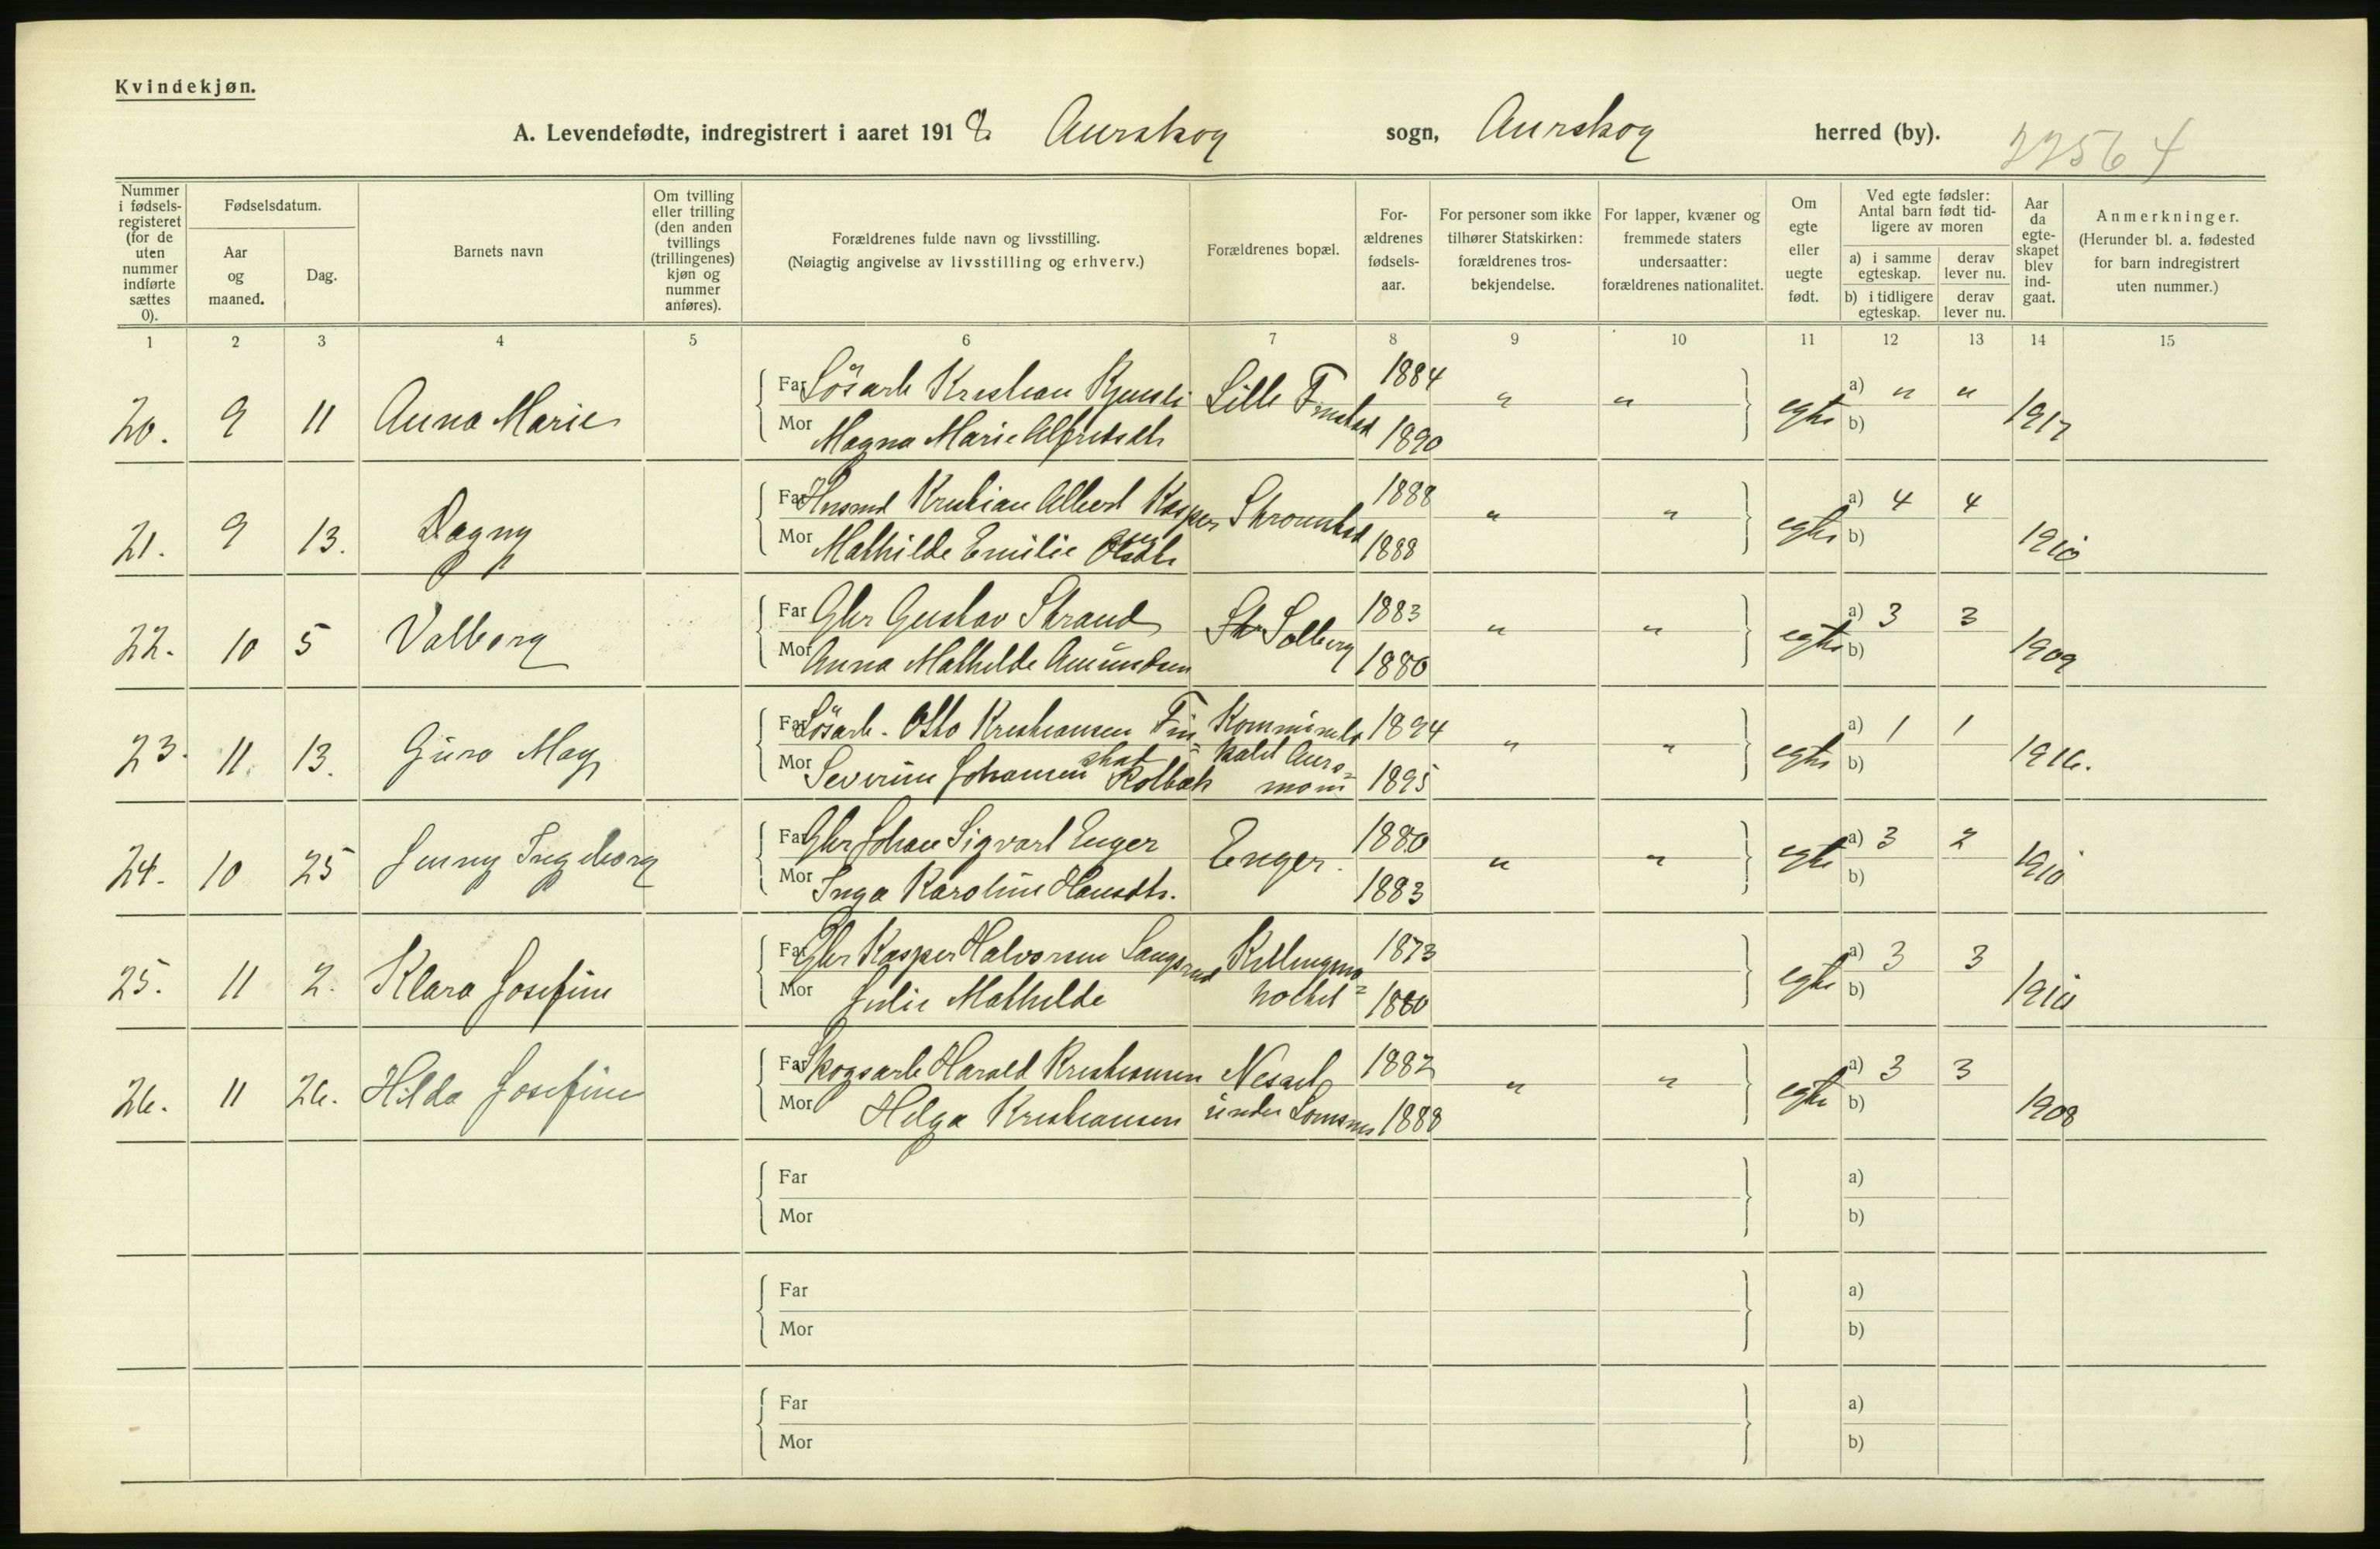 Kvindekjøn.
A. Levendefødte, indregistrert i aaret 1918 Aurskog sogn, Aurskog herred (by). 22564
Nummer i fødsels-registeret (for de uten nummer indførte sættes 0).
Fødselsdatum.
Aar og maaned.
Dag.
Barnets navn
Om tvilling eller trilling (den anden tvillings (trillingenes) kjøn og nummer anføres).
Forældrenes fulde navn og livsstilling.
(Nøiagtig angivelse av livsstilling og erhverv.)
Forældrenes bopæl.
For-ældrenes fødsels-aar.
For personer som ikke tilhører Statskirken: forældrenes tros-bekjendelse.
For lapper, kvæner og fremmede staters undersaatter: forældrenes nationalitet.
Om egte eller uegte født.
Ved egte fødsler: Antal barn født tid-ligere av moren
a) i samme egteskap.
derav lever nu.
b) i tidligere egteskap.
derav lever nu.
Aar da egte-skapet blev ind-gaat.
Anmerkninger.
(Herunder bl. a. fødested for barn indregistrert uten nummer.)
1 2 3 4 5 6 7 8 9 10 11 12 13 14 15
20. 9 11 Anna Marie
Far Løsarb Kristian Lille Finstad 1884 " " egte a) " " 1917
Mor Magna Marie Alfredsdtr 1890 b)
21. 9 13. Dagny
Far Kristian Albert Kasper Stromstad 1888 " " egte a) 4 4 1910
sen
Mor Mathilde Emilie Olsdtr 1888 b)
22. 10 5 Valborg
Far Gbr Gustav Strand St Solberg 1883 " " egte a) 3 3 1909
Mor Anna Mathilde Amundsen 1880 b)
23. 11 13. Guro May
Far Løsarb. Otto Kristiansen Fin Kommunelo 1894 " " egte a) 1 1 1916.
stad kalet Aurs=
Mor Severine Johansen Kolbæk moen 1895 b)
24. 10 25 Jenny Ingeborg
Far Gbr Johan Sigvart Enger Enger. 1880 " " egte a) 3 2 1910
Mor Inga Karoline Hansdtr. 1883 b)
25. 11 2. Klara Josefine
Far Gbr Kasper Halvorsen Langsrud Killingmo= 1873 egte a) 3 3 1910
Mor Julie Mathilde 1880 b)
26. 11 26. Hilda Josefine
Far Skogsarb Harald Kristiansen Nesset 1882 " " egte a) 3 3 1908
Mor Helga Kristiansen under Lomsnes 1888 b)
Far a)
Mor b)
Far a)
Mor b)
Far a)
Mor b)